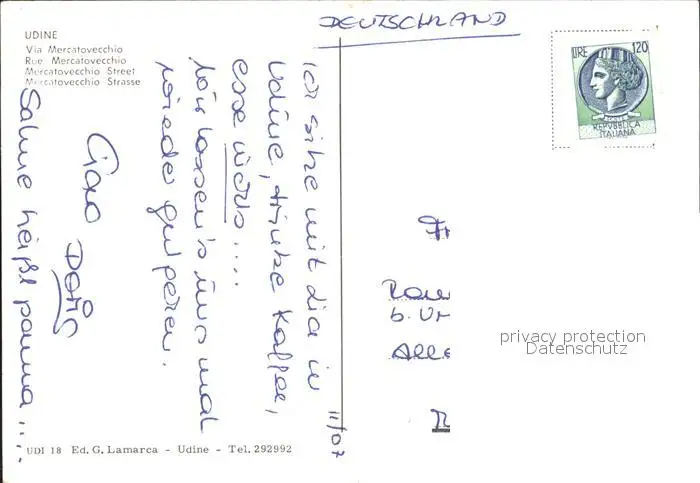 UDINE
Via Mercatovecchio
Rue Mercatovecchio
Mercatovecchio Street
Mercatovecchio Strasse
DEUTSCHLAND
LIRE 120
REPVBBLICA
ITALIANA
11/07
Ich sitze mit dia in
Udine, trinke Kaffee,
esse
wir lassen's uns mal
wieder gut gehen.
Ciao
Doris
Sahne heißt panna ....
Fr
b. Ur
Alle
privacy protection
Datenschutz
UDI 18 Ed. G. Lamarca - Udine - Tel. 292992